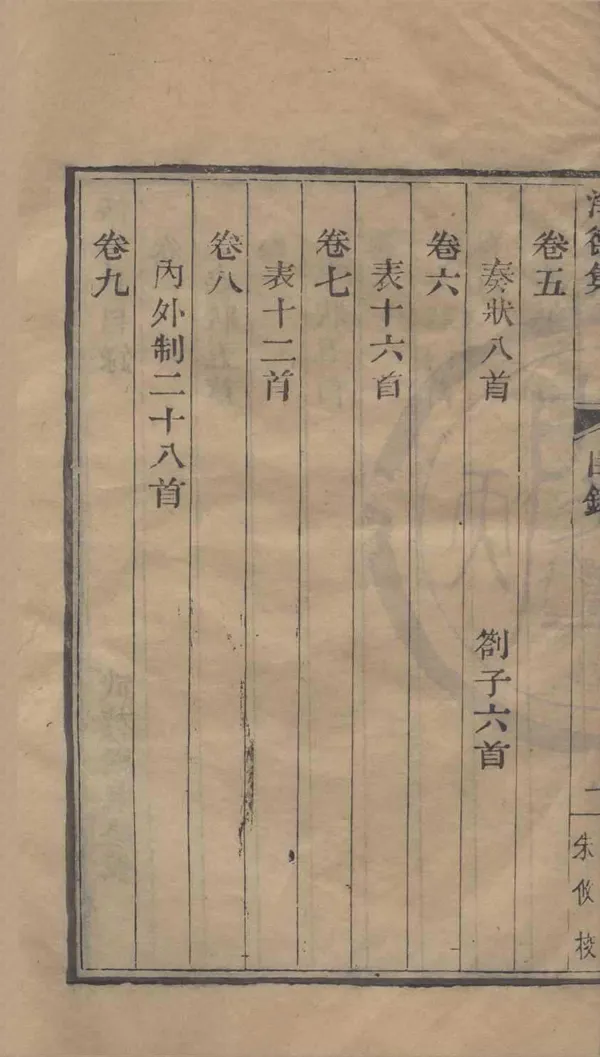 淨德集
目錄
一
朱攸校
卷五
奏狀八首 劄子六首
卷六
表十六首
卷七
表十二首
卷八
內外制二十八首
卷九